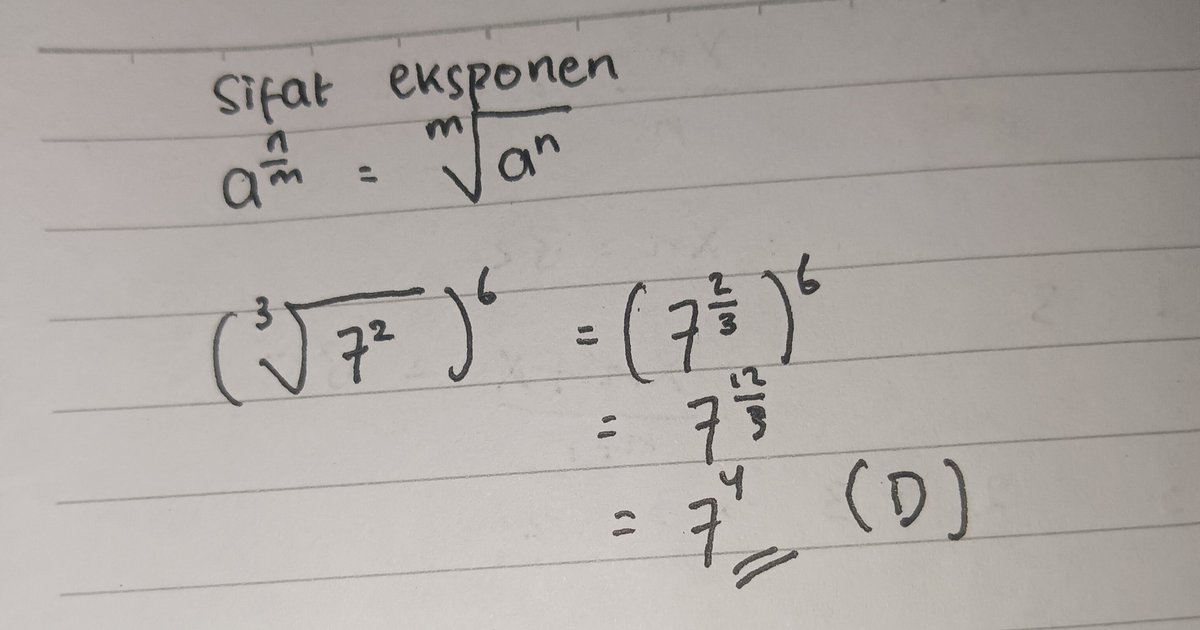 Sifat eksponen
a^(n/m) = ᵐ√(aⁿ)
(³√(7²))⁶ = (7^(2/3))⁶
= 7^(12/3)
= 7⁴ (D)